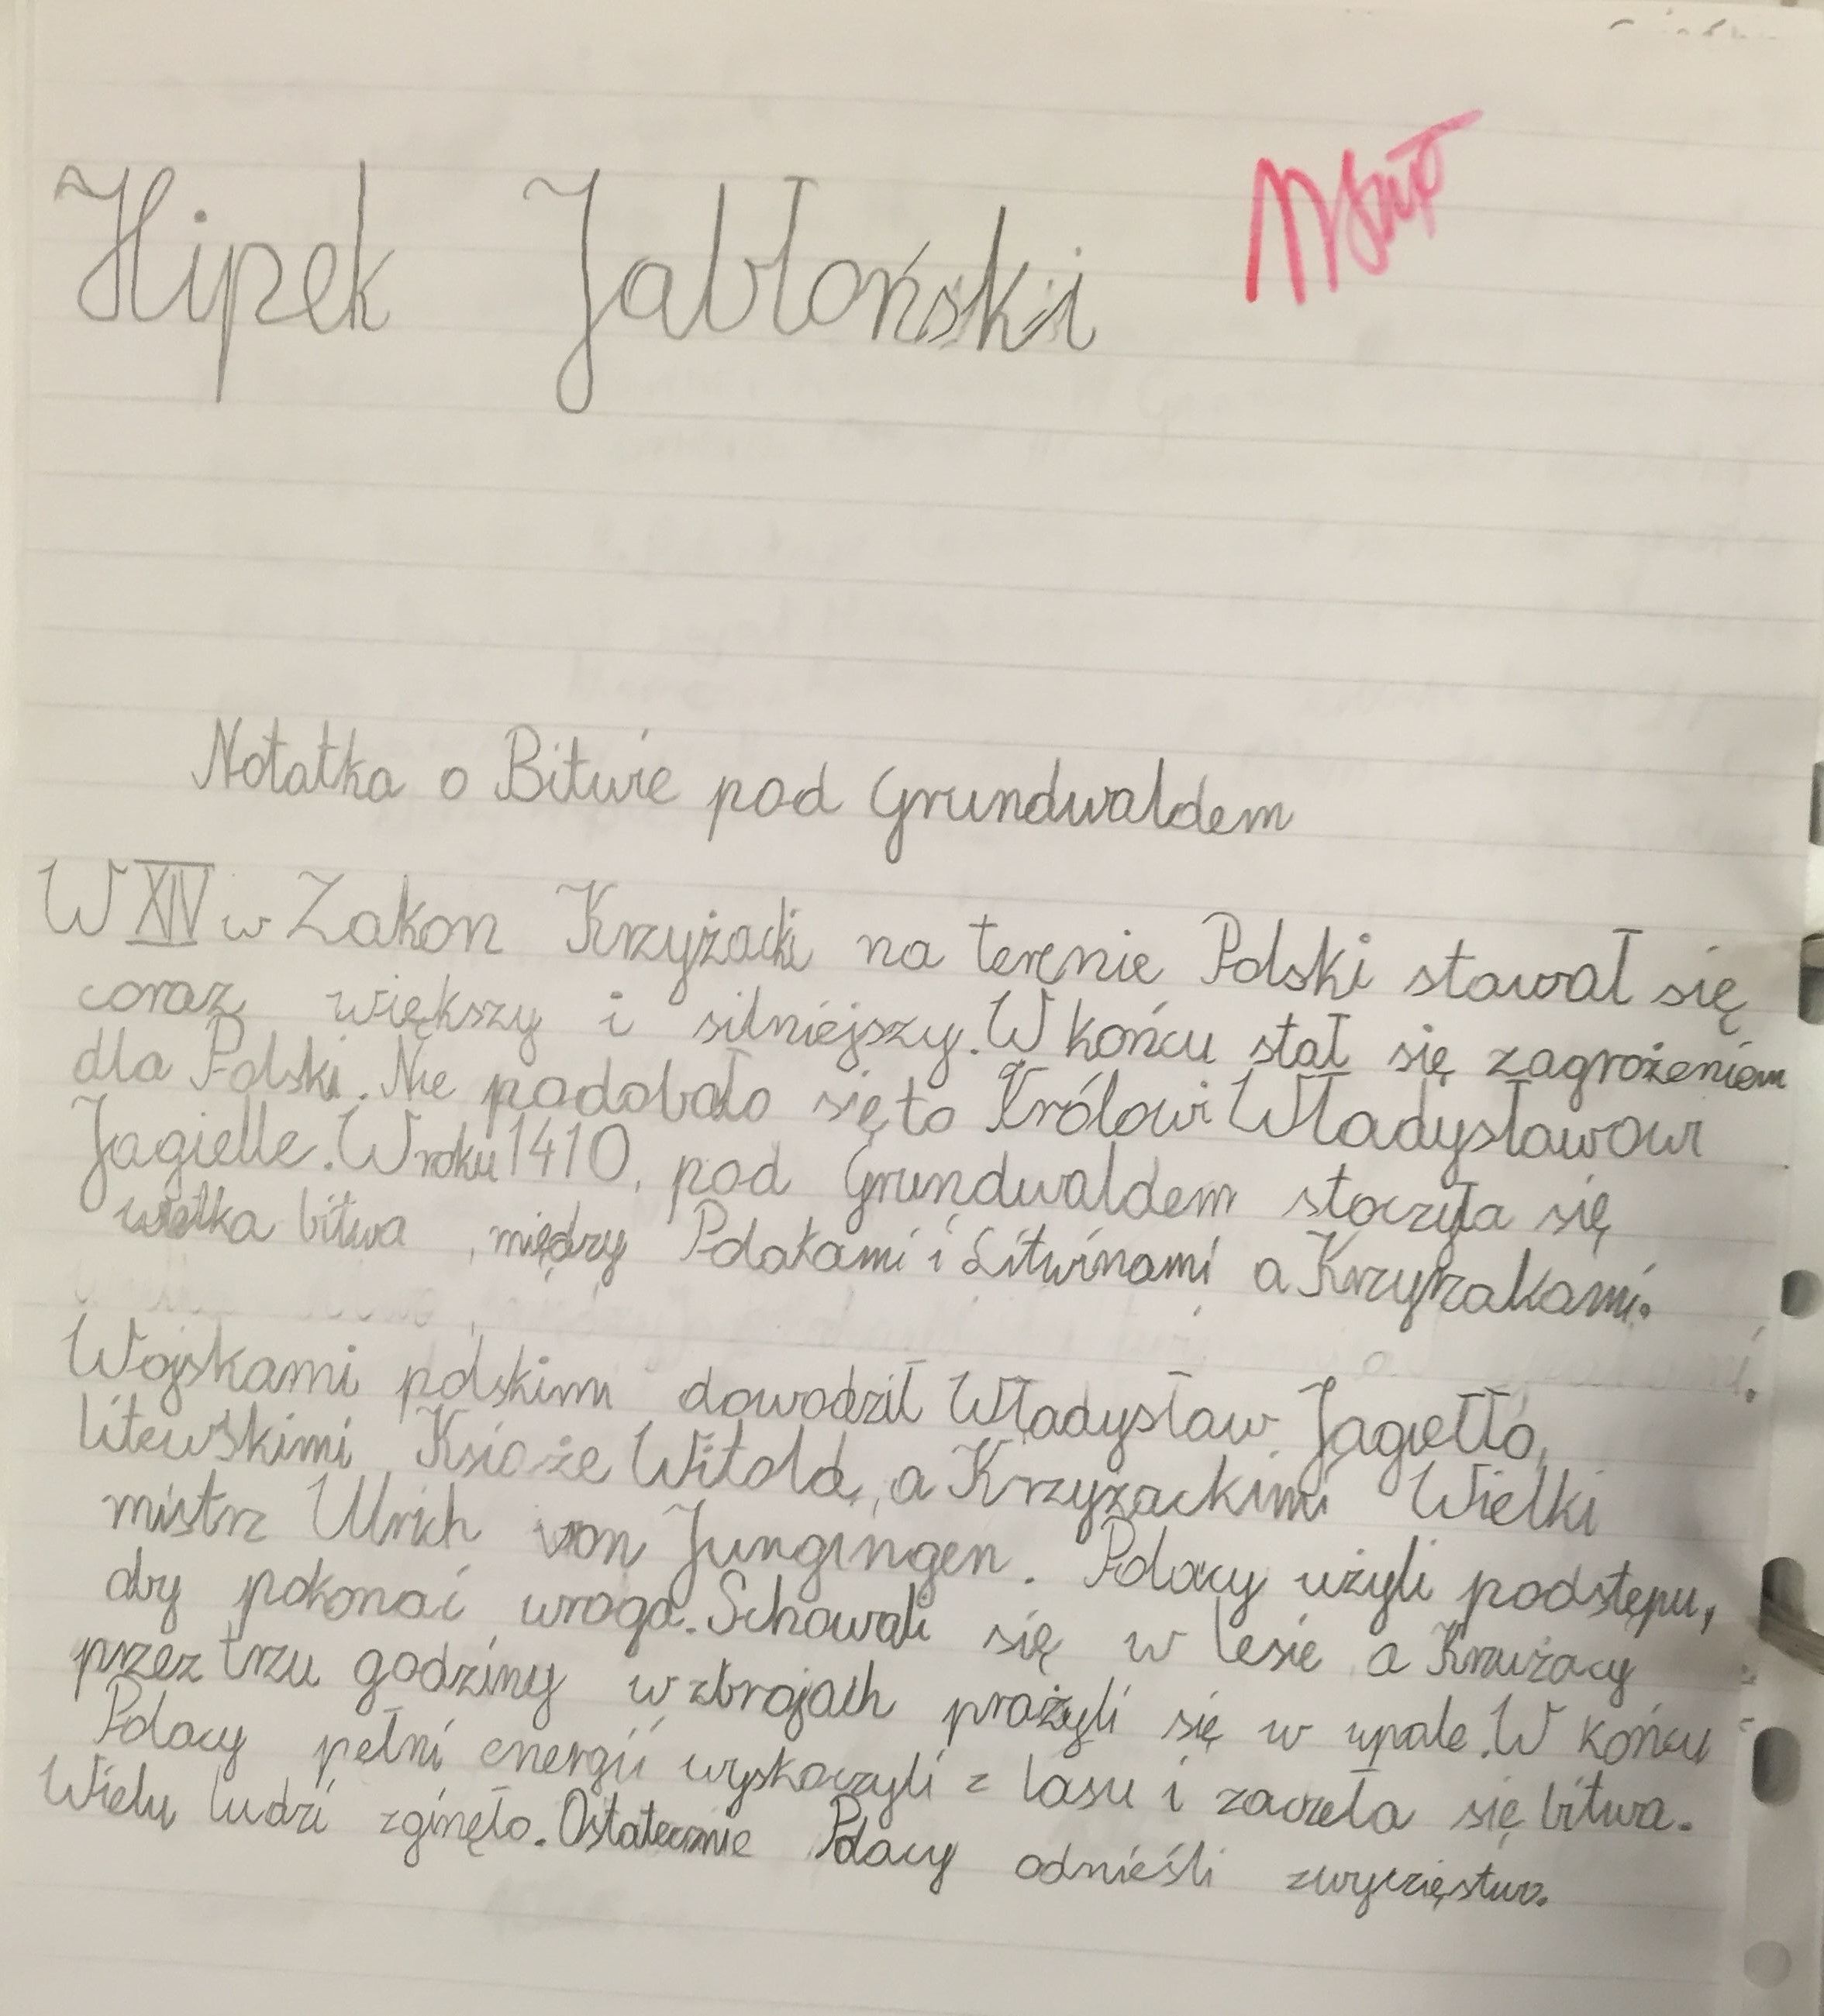 Hipek Jabłoński
Notatka o Bitwie pod Grundwaldem
W XIV w Zakon Krzyżacki na terenie Polski stawał się
coraz większy i silniejszy. W końcu stał się zagrożeniem
dla Polski. Nie podobało się to Królowi Władysławowi
Jagielle. W roku 1410, pod Grundwaldem stoczyła się
wielka bitwa, między Polakami i Litwinami a Krzyrzakami.
Wojskami polskimi dowodził Władysław Jagiełło,
litewskimi Ksioże Witold, a Krzyzackimi Wielki
mistrz Ulrich von Jungingen. Polacy użyli podstępu,
aby pokonać wroga. Schowali się w lesie a Krzużacy
przez trzu godziny w zbrojach prażyli się w upale. W końcu
Polacy pełni energii wyskoczyli z lasu i zaczeła się bitwa.
Wielu ludzi zginęło. Ostatecznie Polacy odnieśli zwycięstwo.